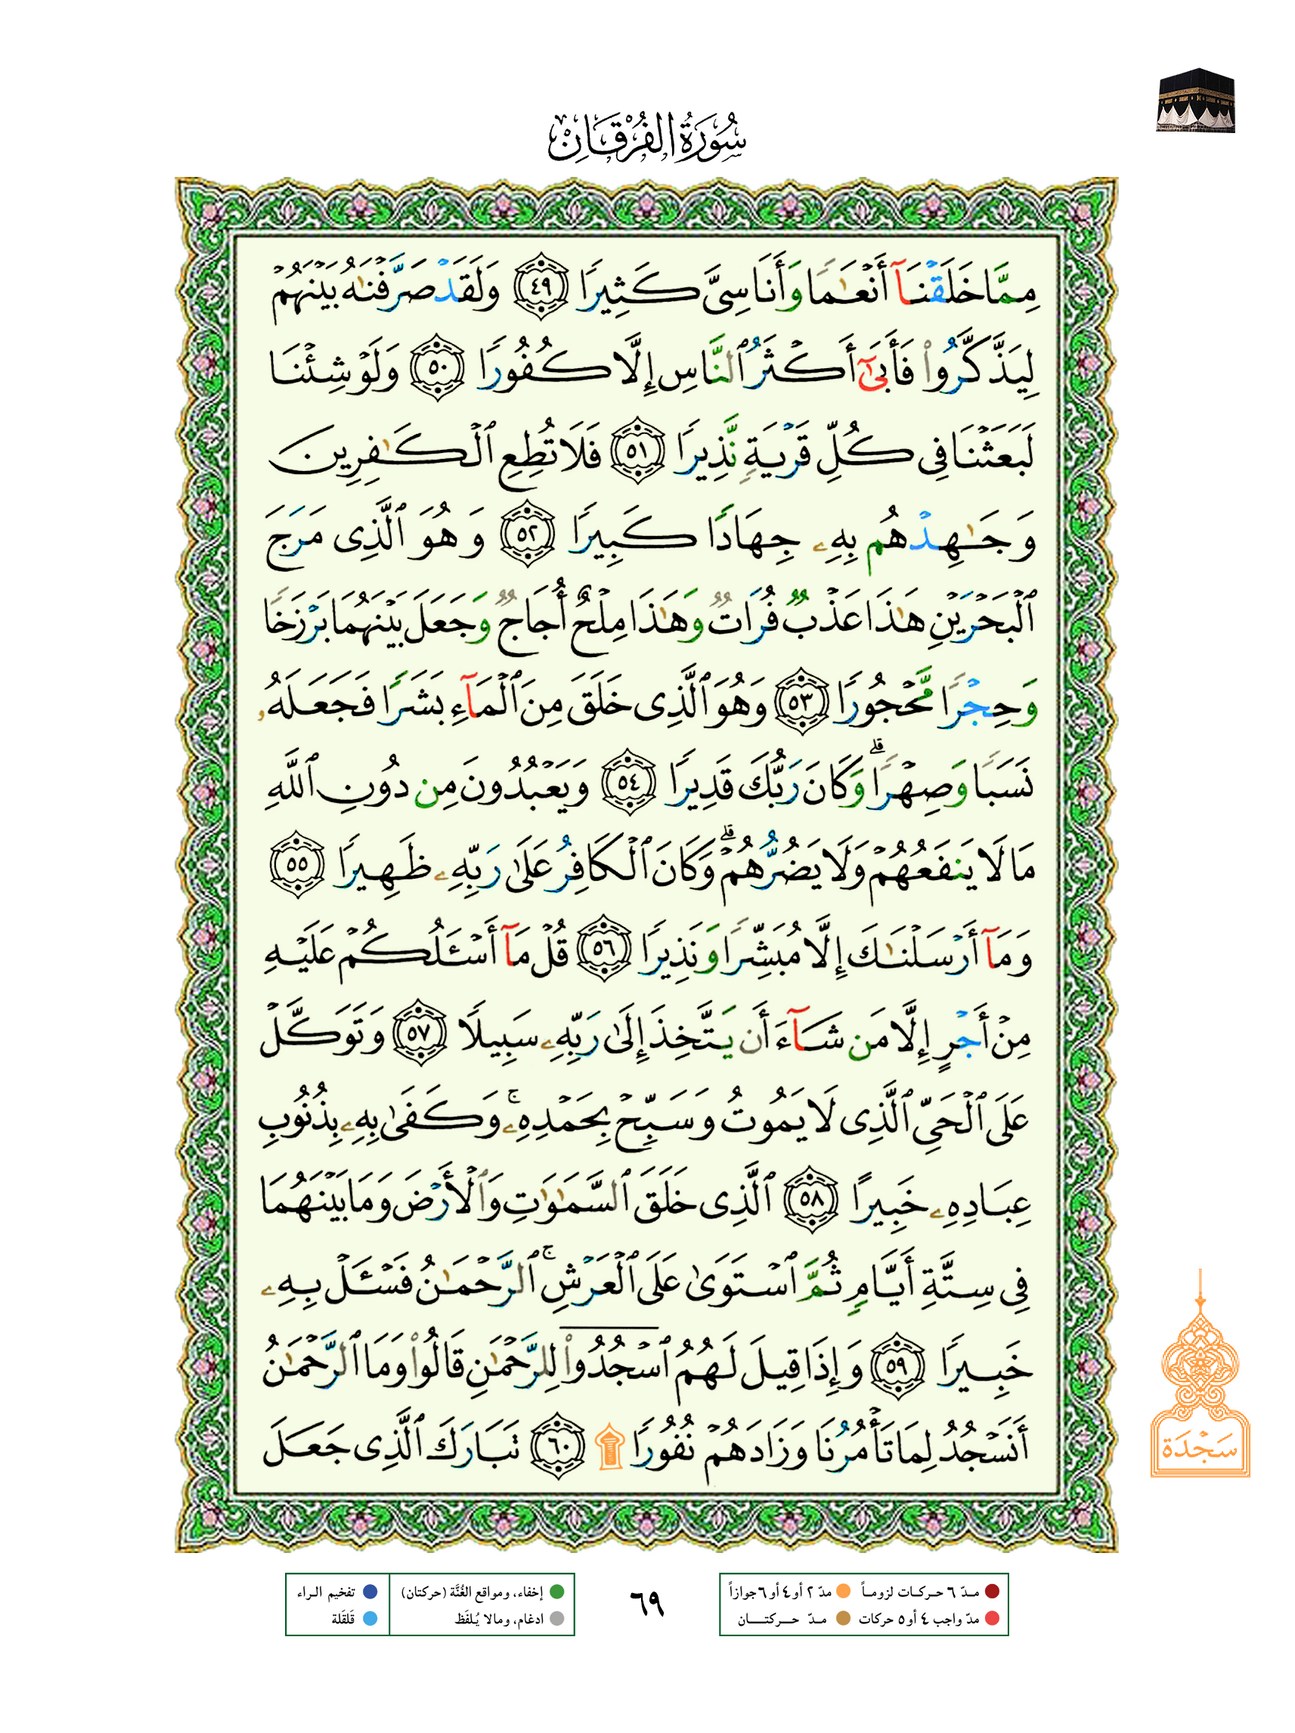 سُورَةُ الفُرْقَانِ
مِمَّا خَلَقْنَآ أَنْعَـٰمًا وَأَنَاسِىَّ كَثِيرًا ﴿٤٩﴾ وَلَقَدْ صَرَّفْنَـٰهُ بَيْنَهُمْ
لِيَذَّكَّرُوا۟ فَأَبَىٰٓ أَكْثَرُ ٱلنَّاسِ إِلَّا كُفُورًا ﴿٥٠﴾ وَلَوْ شِئْنَا
لَبَعَثْنَا فِى كُلِّ قَرْيَةٍ نَّذِيرًا ﴿٥١﴾ فَلَا تُطِعِ ٱلْكَـٰفِرِينَ
وَجَـٰهِدْهُم بِهِۦ جِهَادًا كَبِيرًا ﴿٥٢﴾ وَهُوَ ٱلَّذِى مَرَجَ
ٱلْبَحْرَيْنِ هَـٰذَا عَذْبٌ فُرَاتٌ وَهَـٰذَا مِلْحٌ أُجَاجٌ وَجَعَلَ بَيْنَهُمَا بَرْزَخًا
وَحِجْرًا مَّحْجُورًا ﴿٥٣﴾ وَهُوَ ٱلَّذِى خَلَقَ مِنَ ٱلْمَآءِ بَشَرًا فَجَعَلَهُۥ
نَسَبًا وَصِهْرًا ۗ وَكَانَ رَبُّكَ قَدِيرًا ﴿٥٤﴾ وَيَعْبُدُونَ مِن دُونِ ٱللَّهِ
مَا لَا يَنفَعُهُمْ وَلَا يَضُرُّهُمْ ۗ وَكَانَ ٱلْكَافِرُ عَلَىٰ رَبِّهِۦ ظَهِيرًا ﴿٥٥﴾
وَمَآ أَرْسَلْنَـٰكَ إِلَّا مُبَشِّرًا وَنَذِيرًا ﴿٥٦﴾ قُلْ مَآ أَسْـَٔلُكُمْ عَلَيْهِ
مِنْ أَجْرٍ إِلَّا مَن شَآءَ أَن يَتَّخِذَ إِلَىٰ رَبِّهِۦ سَبِيلًا ﴿٥٧﴾ وَتَوَكَّلْ
عَلَى ٱلْحَىِّ ٱلَّذِى لَا يَمُوتُ وَسَبِّحْ بِحَمْدِهِۦ ۚ وَكَفَىٰ بِهِۦ بِذُنُوبِ
عِبَادِهِۦ خَبِيرًا ﴿٥٨﴾ ٱلَّذِى خَلَقَ ٱلسَّمَـٰوَٰتِ وَٱلْأَرْضَ وَمَا بَيْنَهُمَا
فِى سِتَّةِ أَيَّامٍ ثُمَّ ٱسْتَوَىٰ عَلَى ٱلْعَرْشِ ۚ ٱلرَّحْمَـٰنُ فَسْـَٔلْ بِهِۦ
خَبِيرًا ﴿٥٩﴾ وَإِذَا قِيلَ لَهُمُ ٱسْجُدُوا۟ لِلرَّحْمَـٰنِ قَالُوا۟ وَمَا ٱلرَّحْمَـٰنُ
أَنَسْجُدُ لِمَا تَأْمُرُنَا وَزَادَهُمْ نُفُورًا ۩ ﴿٦٠﴾ تَبَارَكَ ٱلَّذِى جَعَلَ
سَجْدَة
مدّ ٦ حركات لزوماً مدّ ٢ أو ٤ أو ٦ جوازاً
مدّ واجب ٤ أو ٥ حركات مدّ حركتان
٦٩
إخفاء، ومواقع الغُنَّة (حركتان) تفخيم الراء
ادغام، ومالا يُلفَظ قَلقَلة